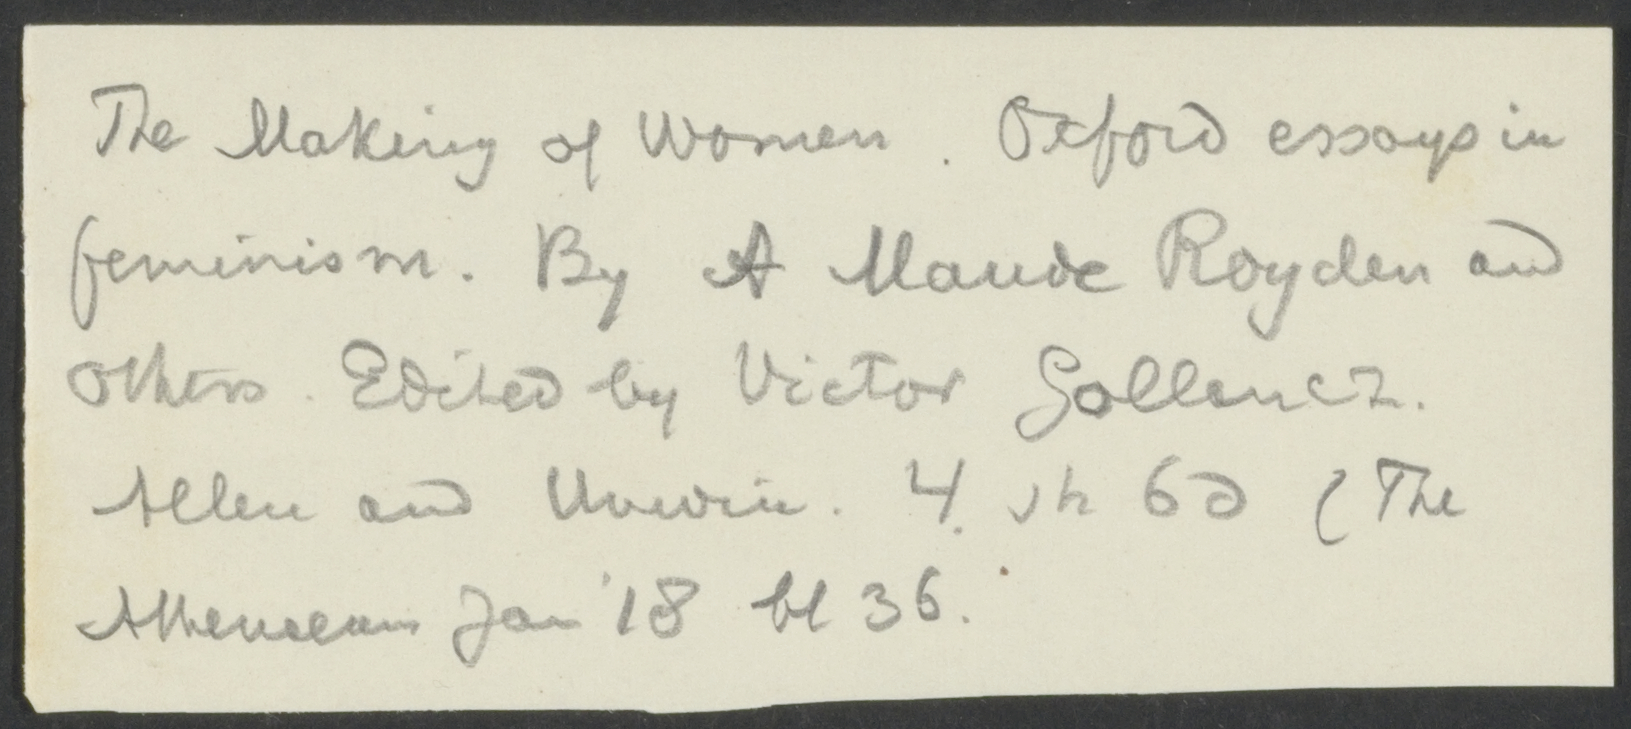 The Making of Women. Oxford essays in
feminism. By A Maude Royden and
others. Edited by Victor Gollancz.
Allen and Unwin. 4. sh 6d (The
Athenaeum Jan '18 bl 36.